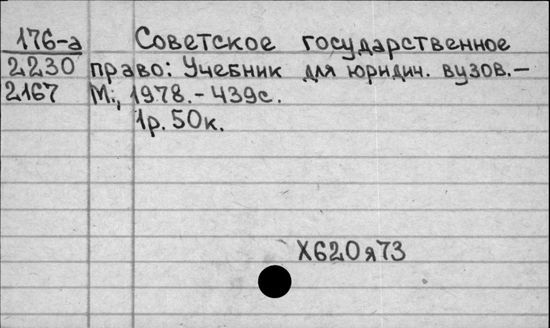 176-а Советское государственное
2230 право: Учебник для юридич. вузов.–
2167 М., 1978.- 439с.
1р. 50к.
Х620я73